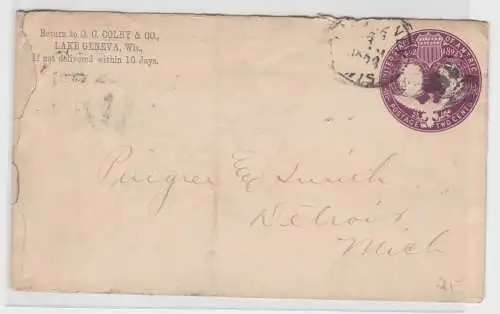 Return to J. C. COLBY & CO.,
LAKE GENEVA, Wis.,
If not delivered within 10 days.
UNITED STATES OF AMERICA
1492 1892
POSTAGE TWO CENTS
WIS
Pingree & Smith
Detroit
Mich
25